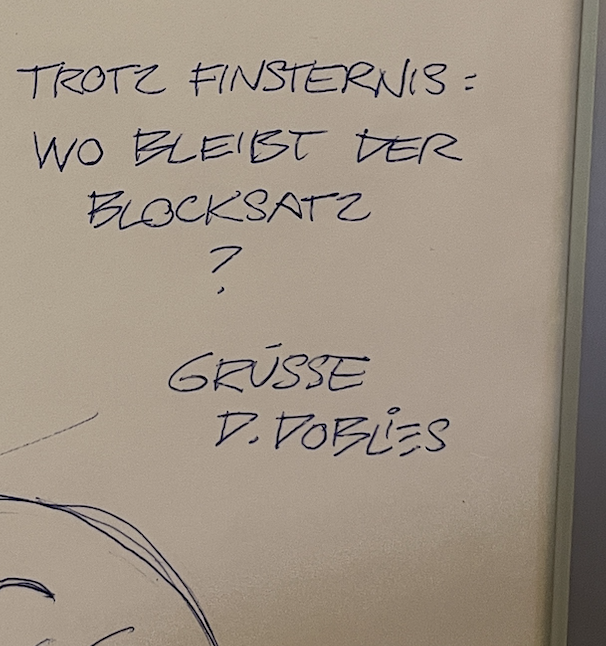 TROTZ FINSTERNIS:
WO BLEIBT DER
BLOCKSATZ
?
GRÜSSE
D. DOBLIES